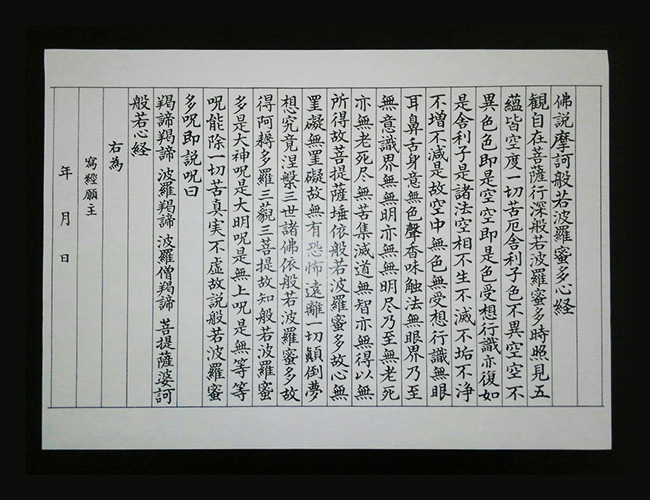 佛説摩訶般若波羅蜜多心経
観自在菩薩行深般若波羅蜜多時照見五
蘊皆空度一切苦厄舎利子色不異空空不
異色色即是空空即是色受想行識亦復如
是舎利子是諸法空相不生不滅不垢不浄
不增不減是故空中無色無受想行識無眼
耳鼻舌身意無色聲香味触法無眼界乃至
無意識界無無明亦無無明尽乃至無老死
亦無老死尽無苦集滅道無智亦無得以無
所得故菩提薩埵依般若波羅蜜多故心無
罣礙無罣礙故無有恐怖遠離一切顛倒夢
想究竟涅槃三世諸佛依般若波羅蜜多故
得阿耨多羅三藐三菩提故知般若波羅蜜
多是大神呪是大明呪是無上呪是無等等
呪能除一切苦真実不虚故説般若波羅蜜
多呪即説呪曰
羯諦羯諦 波羅羯諦 波羅僧羯諦 菩提薩婆訶
般若心経
右為
寫経願主
年 月 日